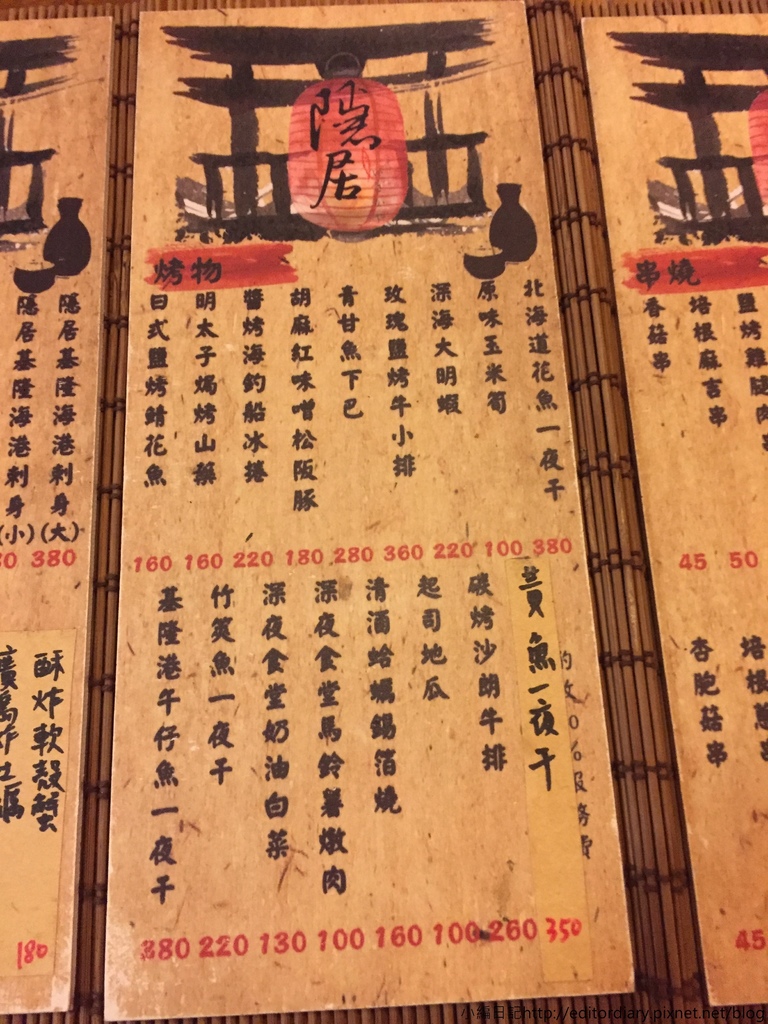 隱居
烤物
北海道花魚一夜干
380
原味玉米筍
100
深海大明蝦
220
玫瑰鹽烤牛小排
360
青甘魚下巴
280
胡麻紅味噌松阪豚
180
醬烤海釣船冰捲
220
明太子焗烤山藥
160
日式鹽烤鯖花魚
160
黃魚一夜干
350
碳烤沙朗牛排
260
起司地瓜
100
清酒蛤蠣錫箔燒
160
深夜食堂馬鈴薯燉肉
100
深夜食堂奶油白菜
130
竹筴魚一夜干
220
基隆港午仔魚一夜干
380
串燒
鹽烤雞腿肉串
培根麻吉串
50
香菇串
45
杏胞菇串
45
隱居基隆海港刺身(大)
380
隱居基隆海港刺身(小)
酥炸軟殼蟹
180
小編日記http://editordiary.pixnet.net/blog